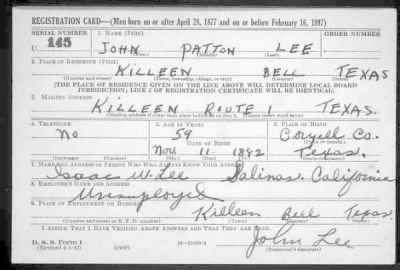 REGISTRATION CARD—(Men born on or after April 28, 1877 and on or before February 16, 1897)
SERIAL NUMBER 1. NAME (Print) ORDER NUMBER
U 145 JOHN PATTON LEE
(First) (Middle) (Last)
2. PLACE OF RESIDENCE (Print)
KILLEEN BELL TEXAS
(Number and street) (Town, township, village, or city) (County) (State)
[THE PLACE OF RESIDENCE GIVEN ON THE LINE ABOVE WILL DETERMINE LOCAL BOARD
JURISDICTION; LINE 2 OF REGISTRATION CERTIFICATE WILL BE IDENTICAL]
3. MAILING ADDRESS
KILLEEN ROUTE 1 TEXAS.
4. TELEPHONE 5. AGE IN YEARS 6. PLACE OF BIRTH
No 59 Coryell Co.
DATE OF BIRTH
Nov. 11. 1882 Texas.
7. NAME AND ADDRESS OF PERSON WHO WILL ALWAYS KNOW YOUR ADDRESS
Isaac W. Lee Salinas. California
8. EMPLOYER'S NAME AND ADDRESS
Unemployed
9. PLACE OF EMPLOYMENT OR BUSINESS
Killeen Bell Texas
(Number and street or R. F. D. number) (Town) (County) (State)
I AFFIRM THAT I HAVE VERIFIED ABOVE ANSWERS AND THAT THEY ARE TRUE.
D. S. S. Form 1
(Revised 4-1-42) (over) John Lee